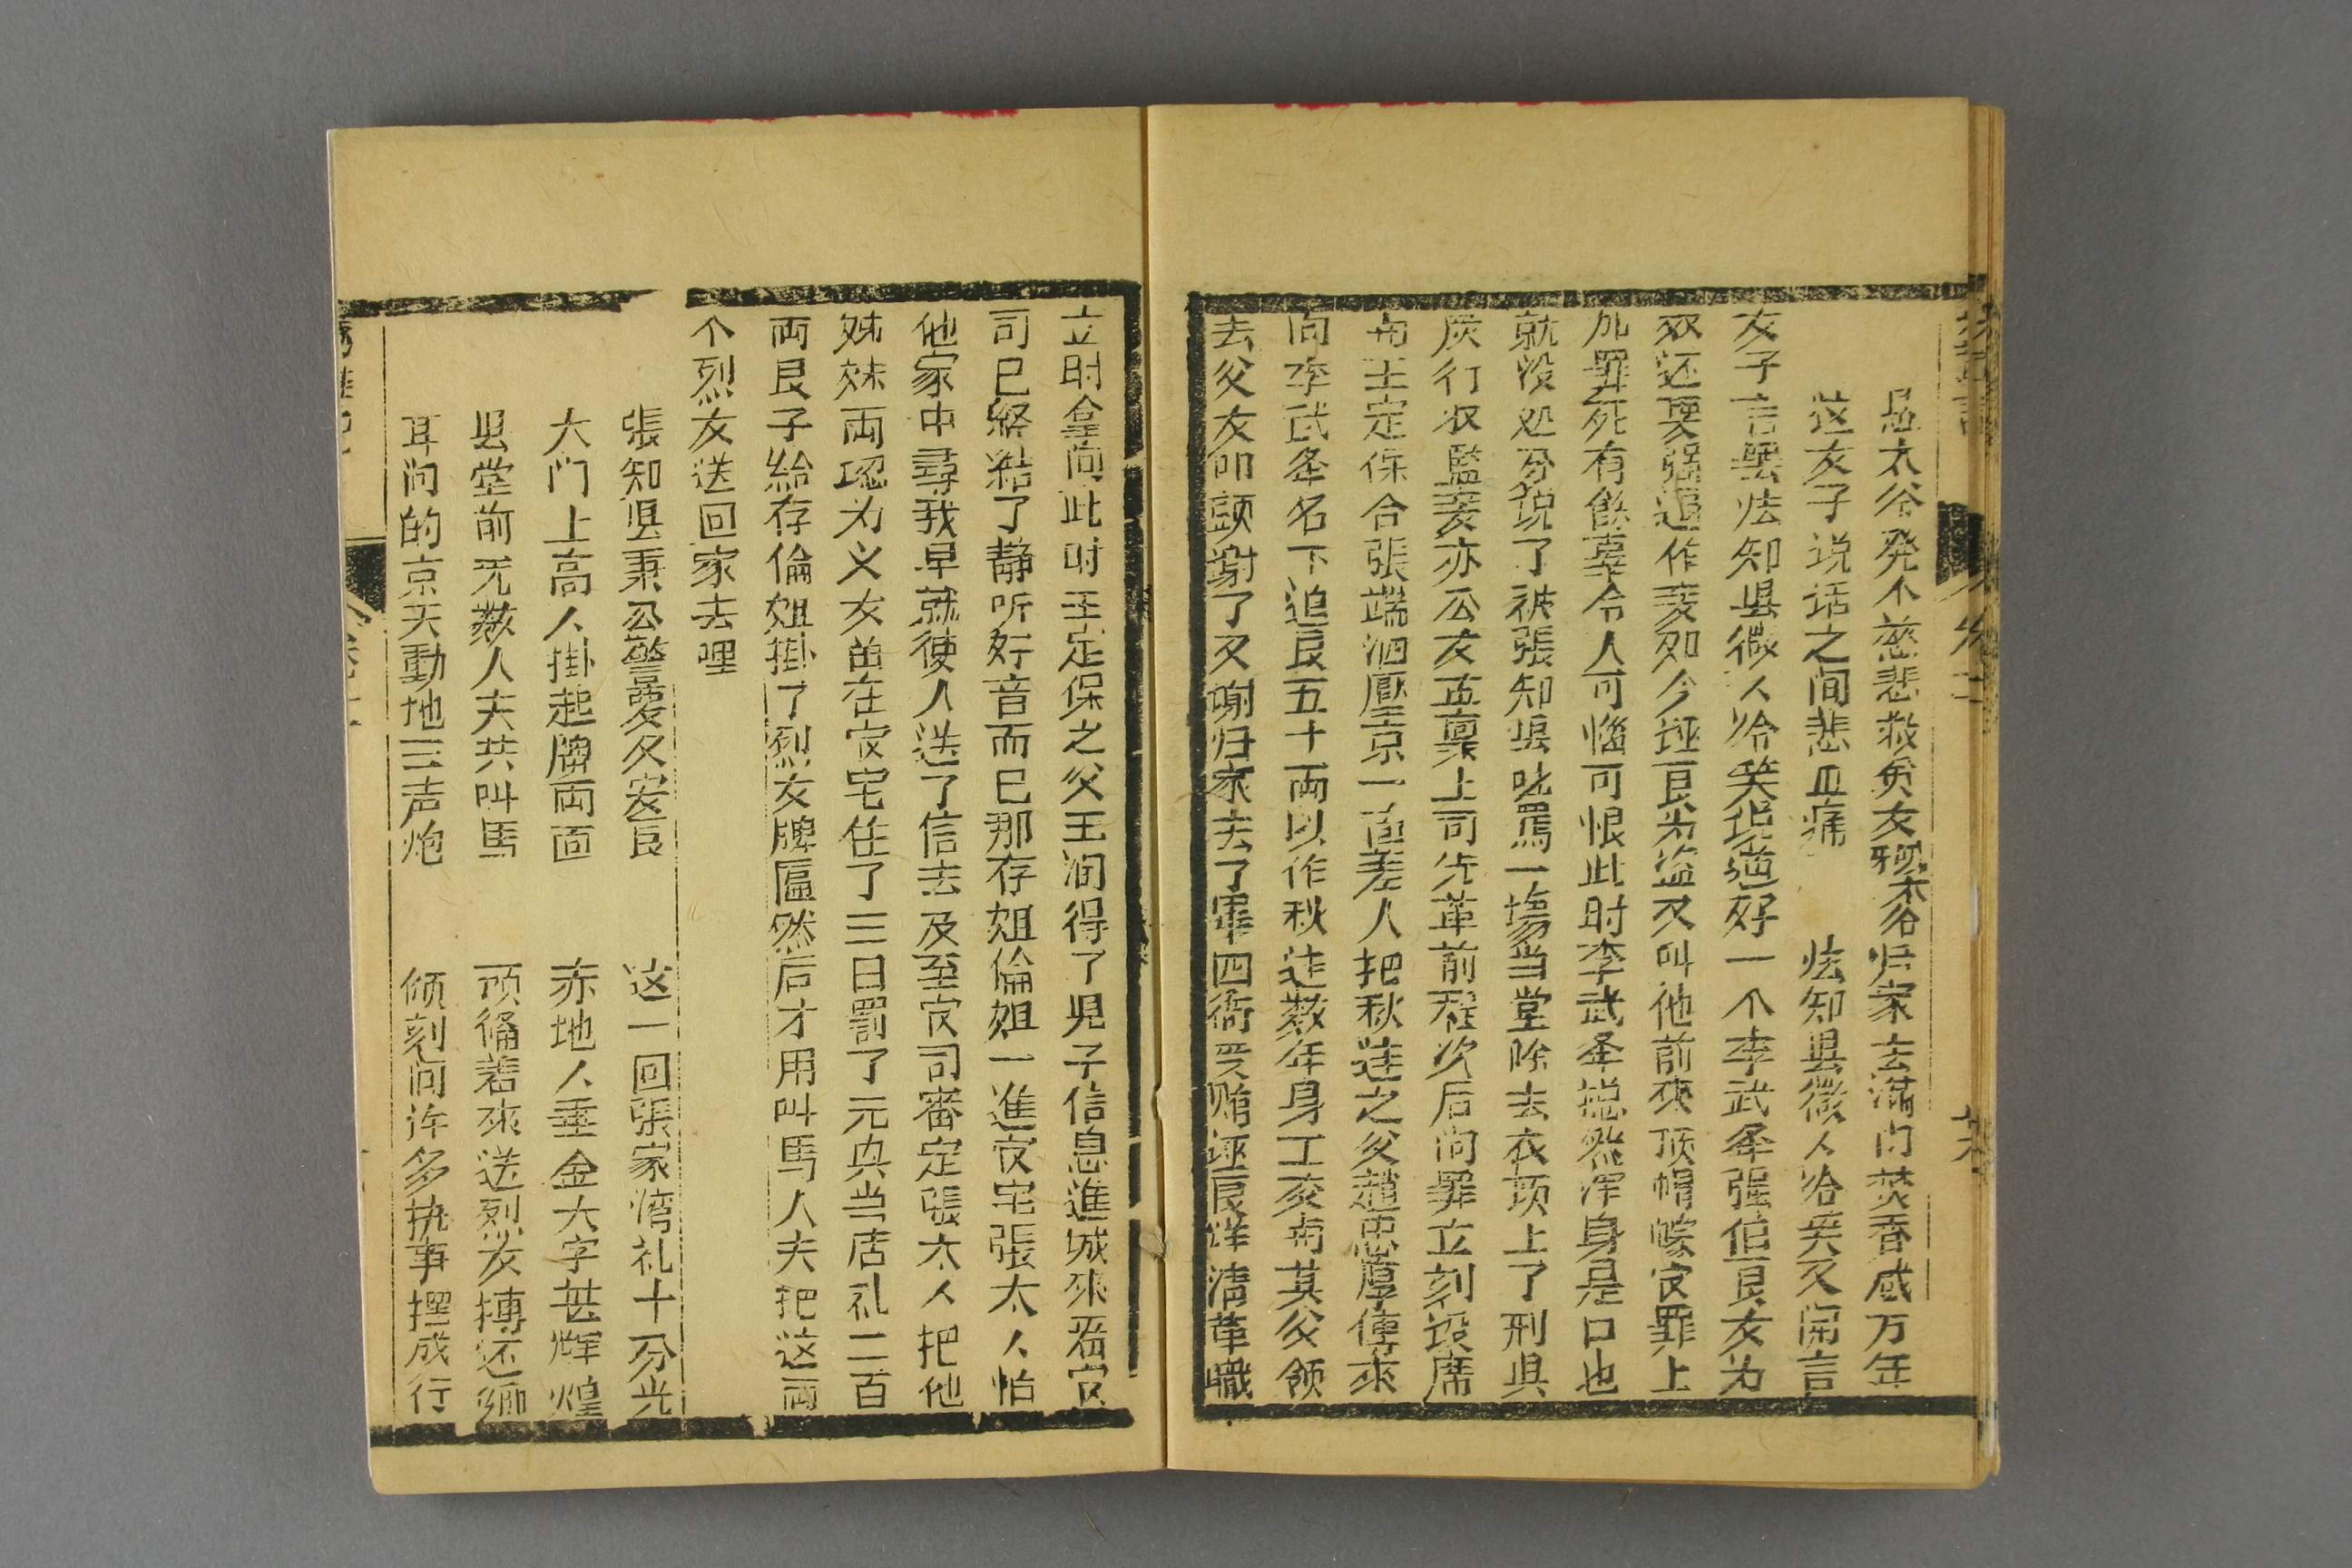 太爷発个慈悲救贫女 归家去满门焚香感万年
这女子说话之间悲且痛 知县微人冷笑又開言
女子言罢怯知县微人冷笑说道好一个李武举强佔良女为
奴还要强逼作妾如今诬良为盗又叫他前來顶帽 官罪上
加罪死有餘辜令人可惱可恨此时李武举 然浑身是口也
就没处分说了被張知县叱罵一塲当堂除去衣顶上了刑具
灰行収監妾亦公文孟禀上司先革前程次后问罪立刻设席
与王定保合張端酒壓京一面差人把秋莲之父趙忠厚傳來
向李武举名下追良五十両以作秋莲数年身工交与其父領
去父女叩頭謝了又謝归家去了單四衙受賄诬良 清革職
立时拿问此时王定保之父王润得了児子信息進城來看官
司已終結了静听好音而已那存姐倫姐一進官宅張太人怕
他家中尋我早就使人送了信去及至官司審定張太人把他
姊妹両认为义女苗在官宅住了三日罰了元興当店礼二百
両良子給存倫姐掛了烈女牌匾然后才用叫馬人夫把这両
个烈女送回家去哩
張知县秉公警 又安良 这一回張家湾礼十分光
大门上高人掛起牌両面 赤地人垂金大字甚辉煌
县堂前无数人夫共叫馬 预备着來送烈女搏还鄉
耳问的京天動地三声炮 倾刻间许多执事摆成行